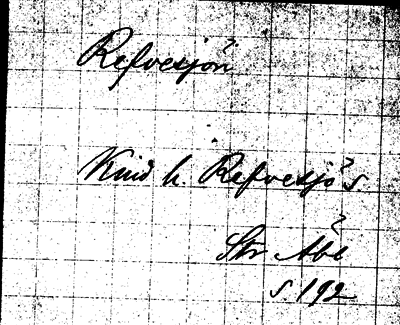 Refvesjön
Kind h. Refvesjö s
Str Åbl
s. 192